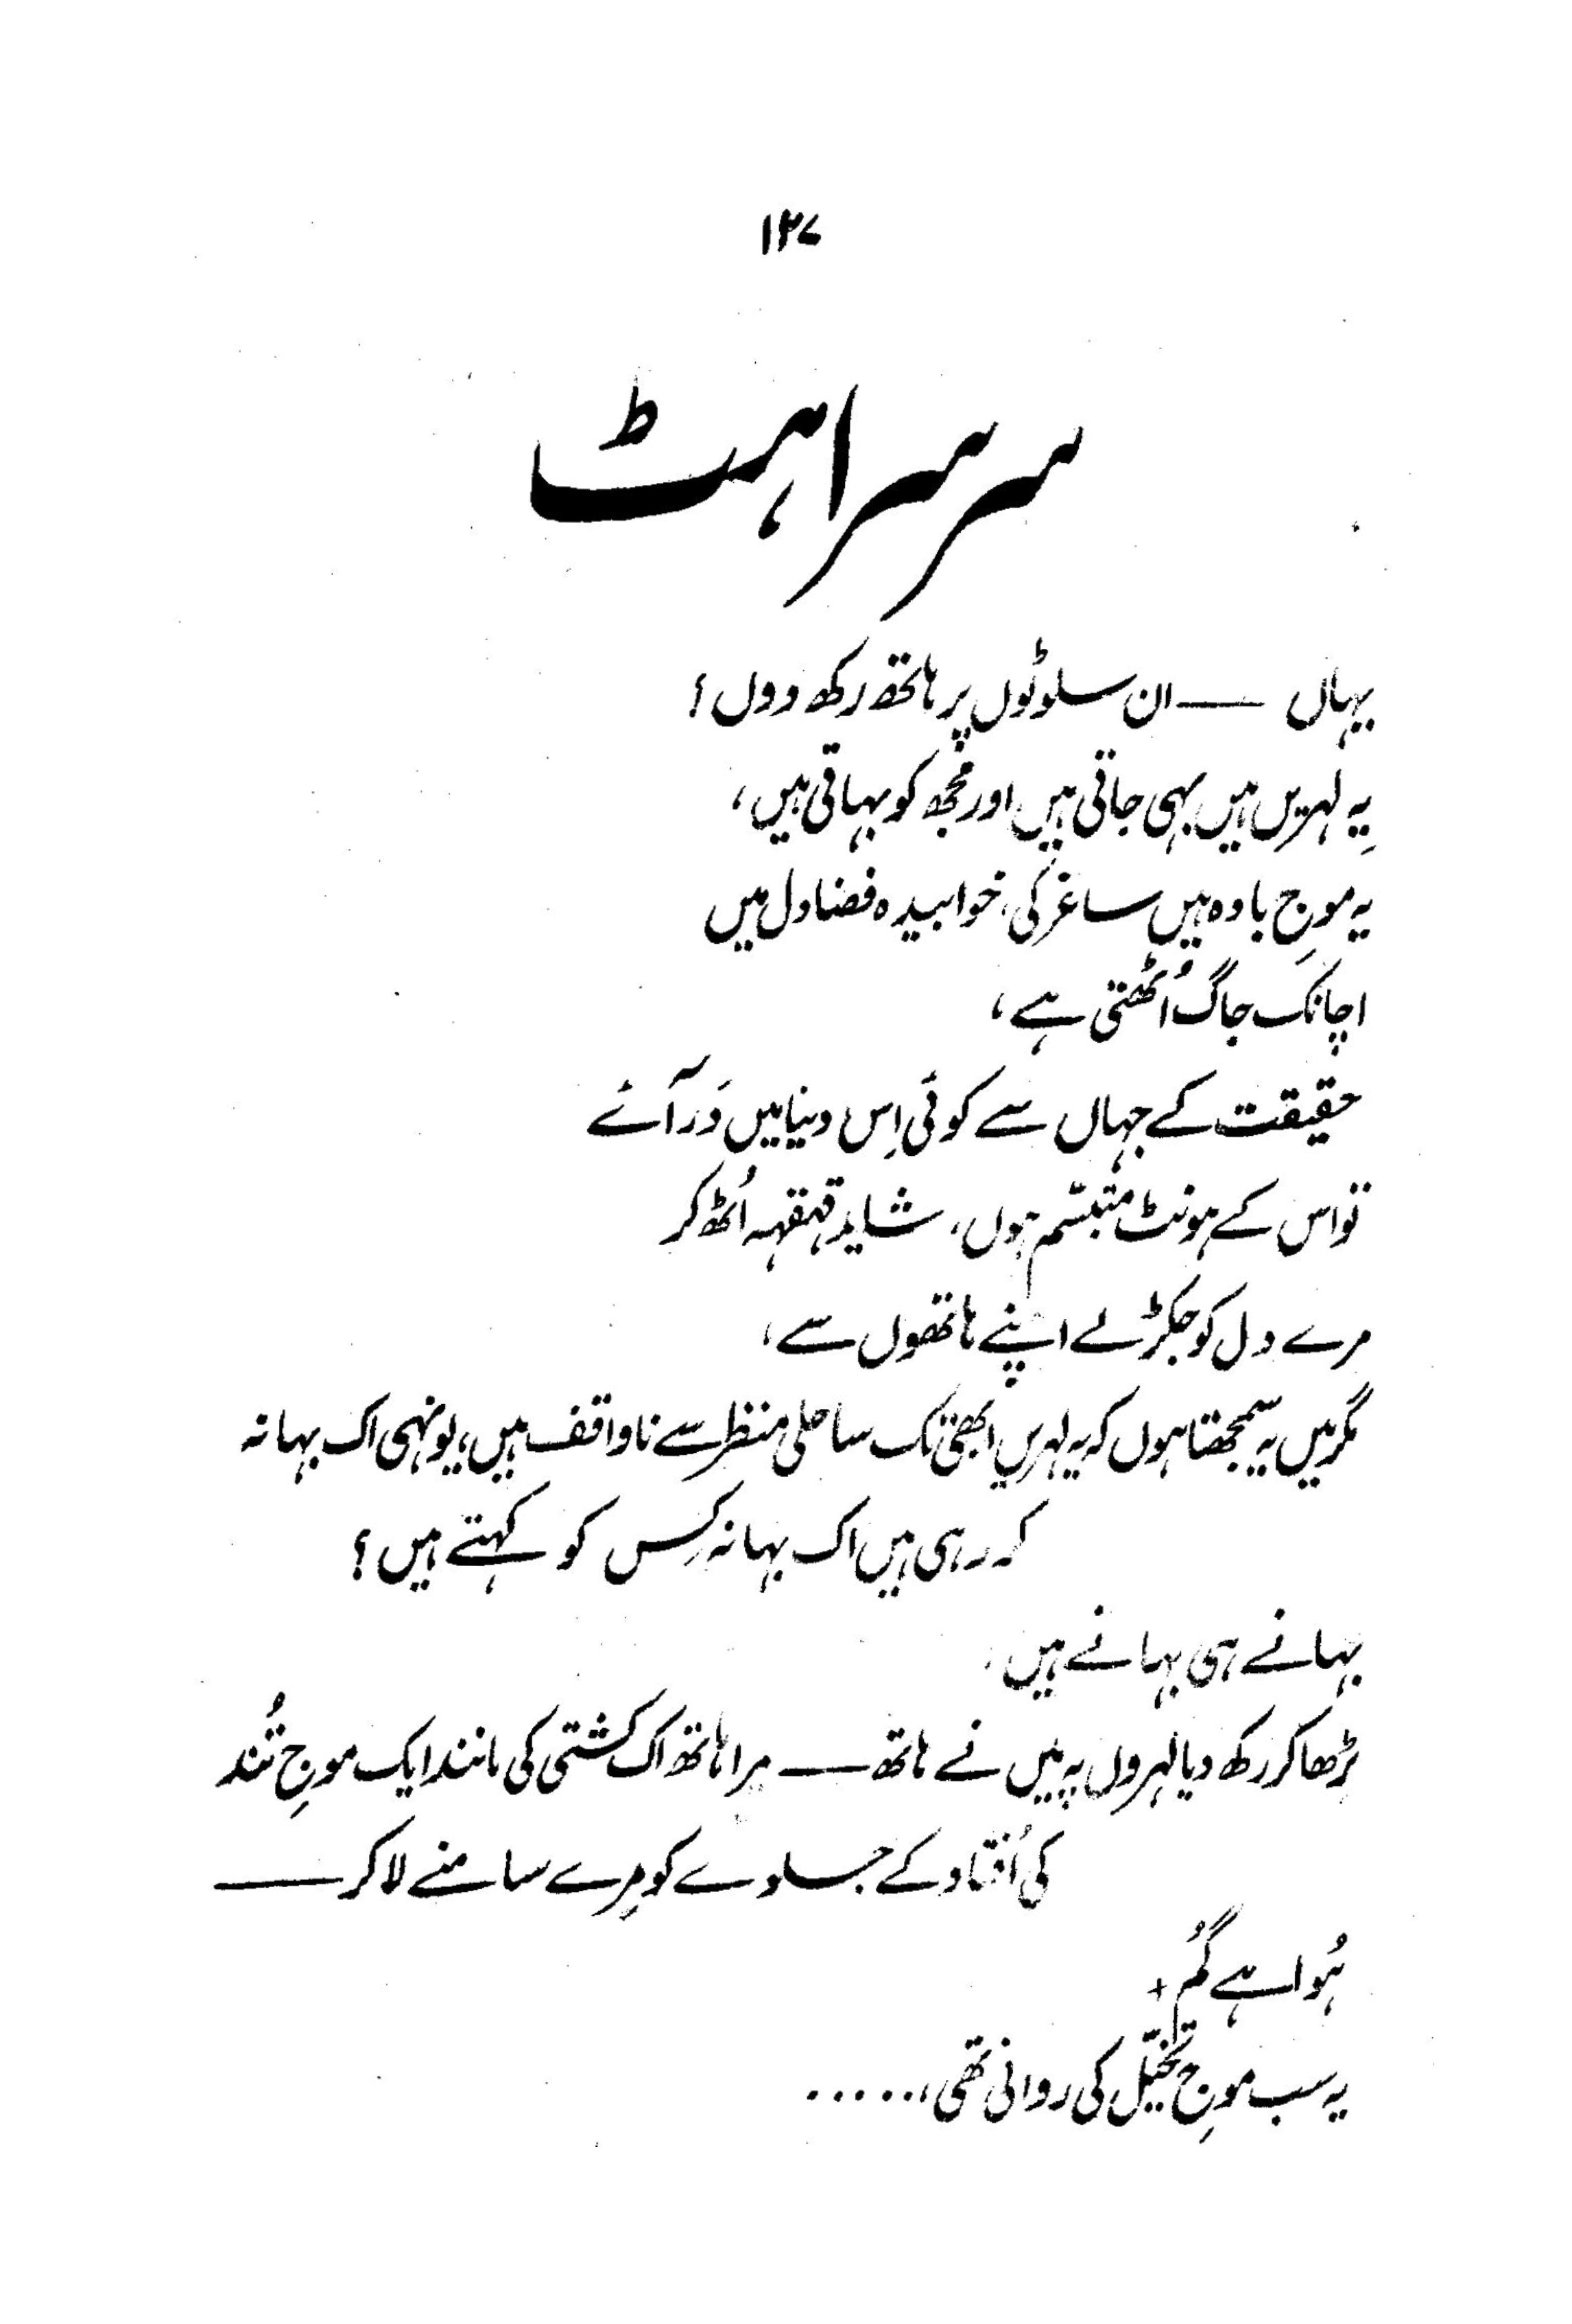 ۱۲۷
سرسراہٹ
یہاں ـــــ ان سلوٹوں پر ہاتھ رکھ دوں؟
یہ لہریں ہیں بہی جاتی ہیں اور مُجھ کو بہاتی ہیں،
یہ موجِ بادہ ہیں ساغر کی، خوابیدہ فضا دل میں
اچانک جاگ اُٹھتی ہے،
حقیقت کے جہاں سے کوئی اِس دنیا میں دَر آئے
تو اس کے ہونٹ متبسّم ہوں، شاید قہقہہ اُٹھ کر
مرے دل کو جکڑ لے اپنے ہاتھوں سے،
مگر میں یہ سمجھتا ہوں کہ یہ لہریں ابھی تک ساحلی منظر سے ناواقف ہیں، یونہی اک بہانہ
کہ رہی ہیں اک بہانہ کِس کو کہتے ہیں؟
بہانے ہی بہانے ہیں،
بڑھا کر رکھ دیا لہروں پہ میں نے ہاتھ ـــــ مرا ہاتھ اک کشتی کی مانند ایک موجِ تُند
کی اُفتاد کے جلوے کو مِرے سامنے لا کر ـــــ
ہُوا ہے گُم +
یہ سب موجِ تخیّل کی روانی تھی، .....